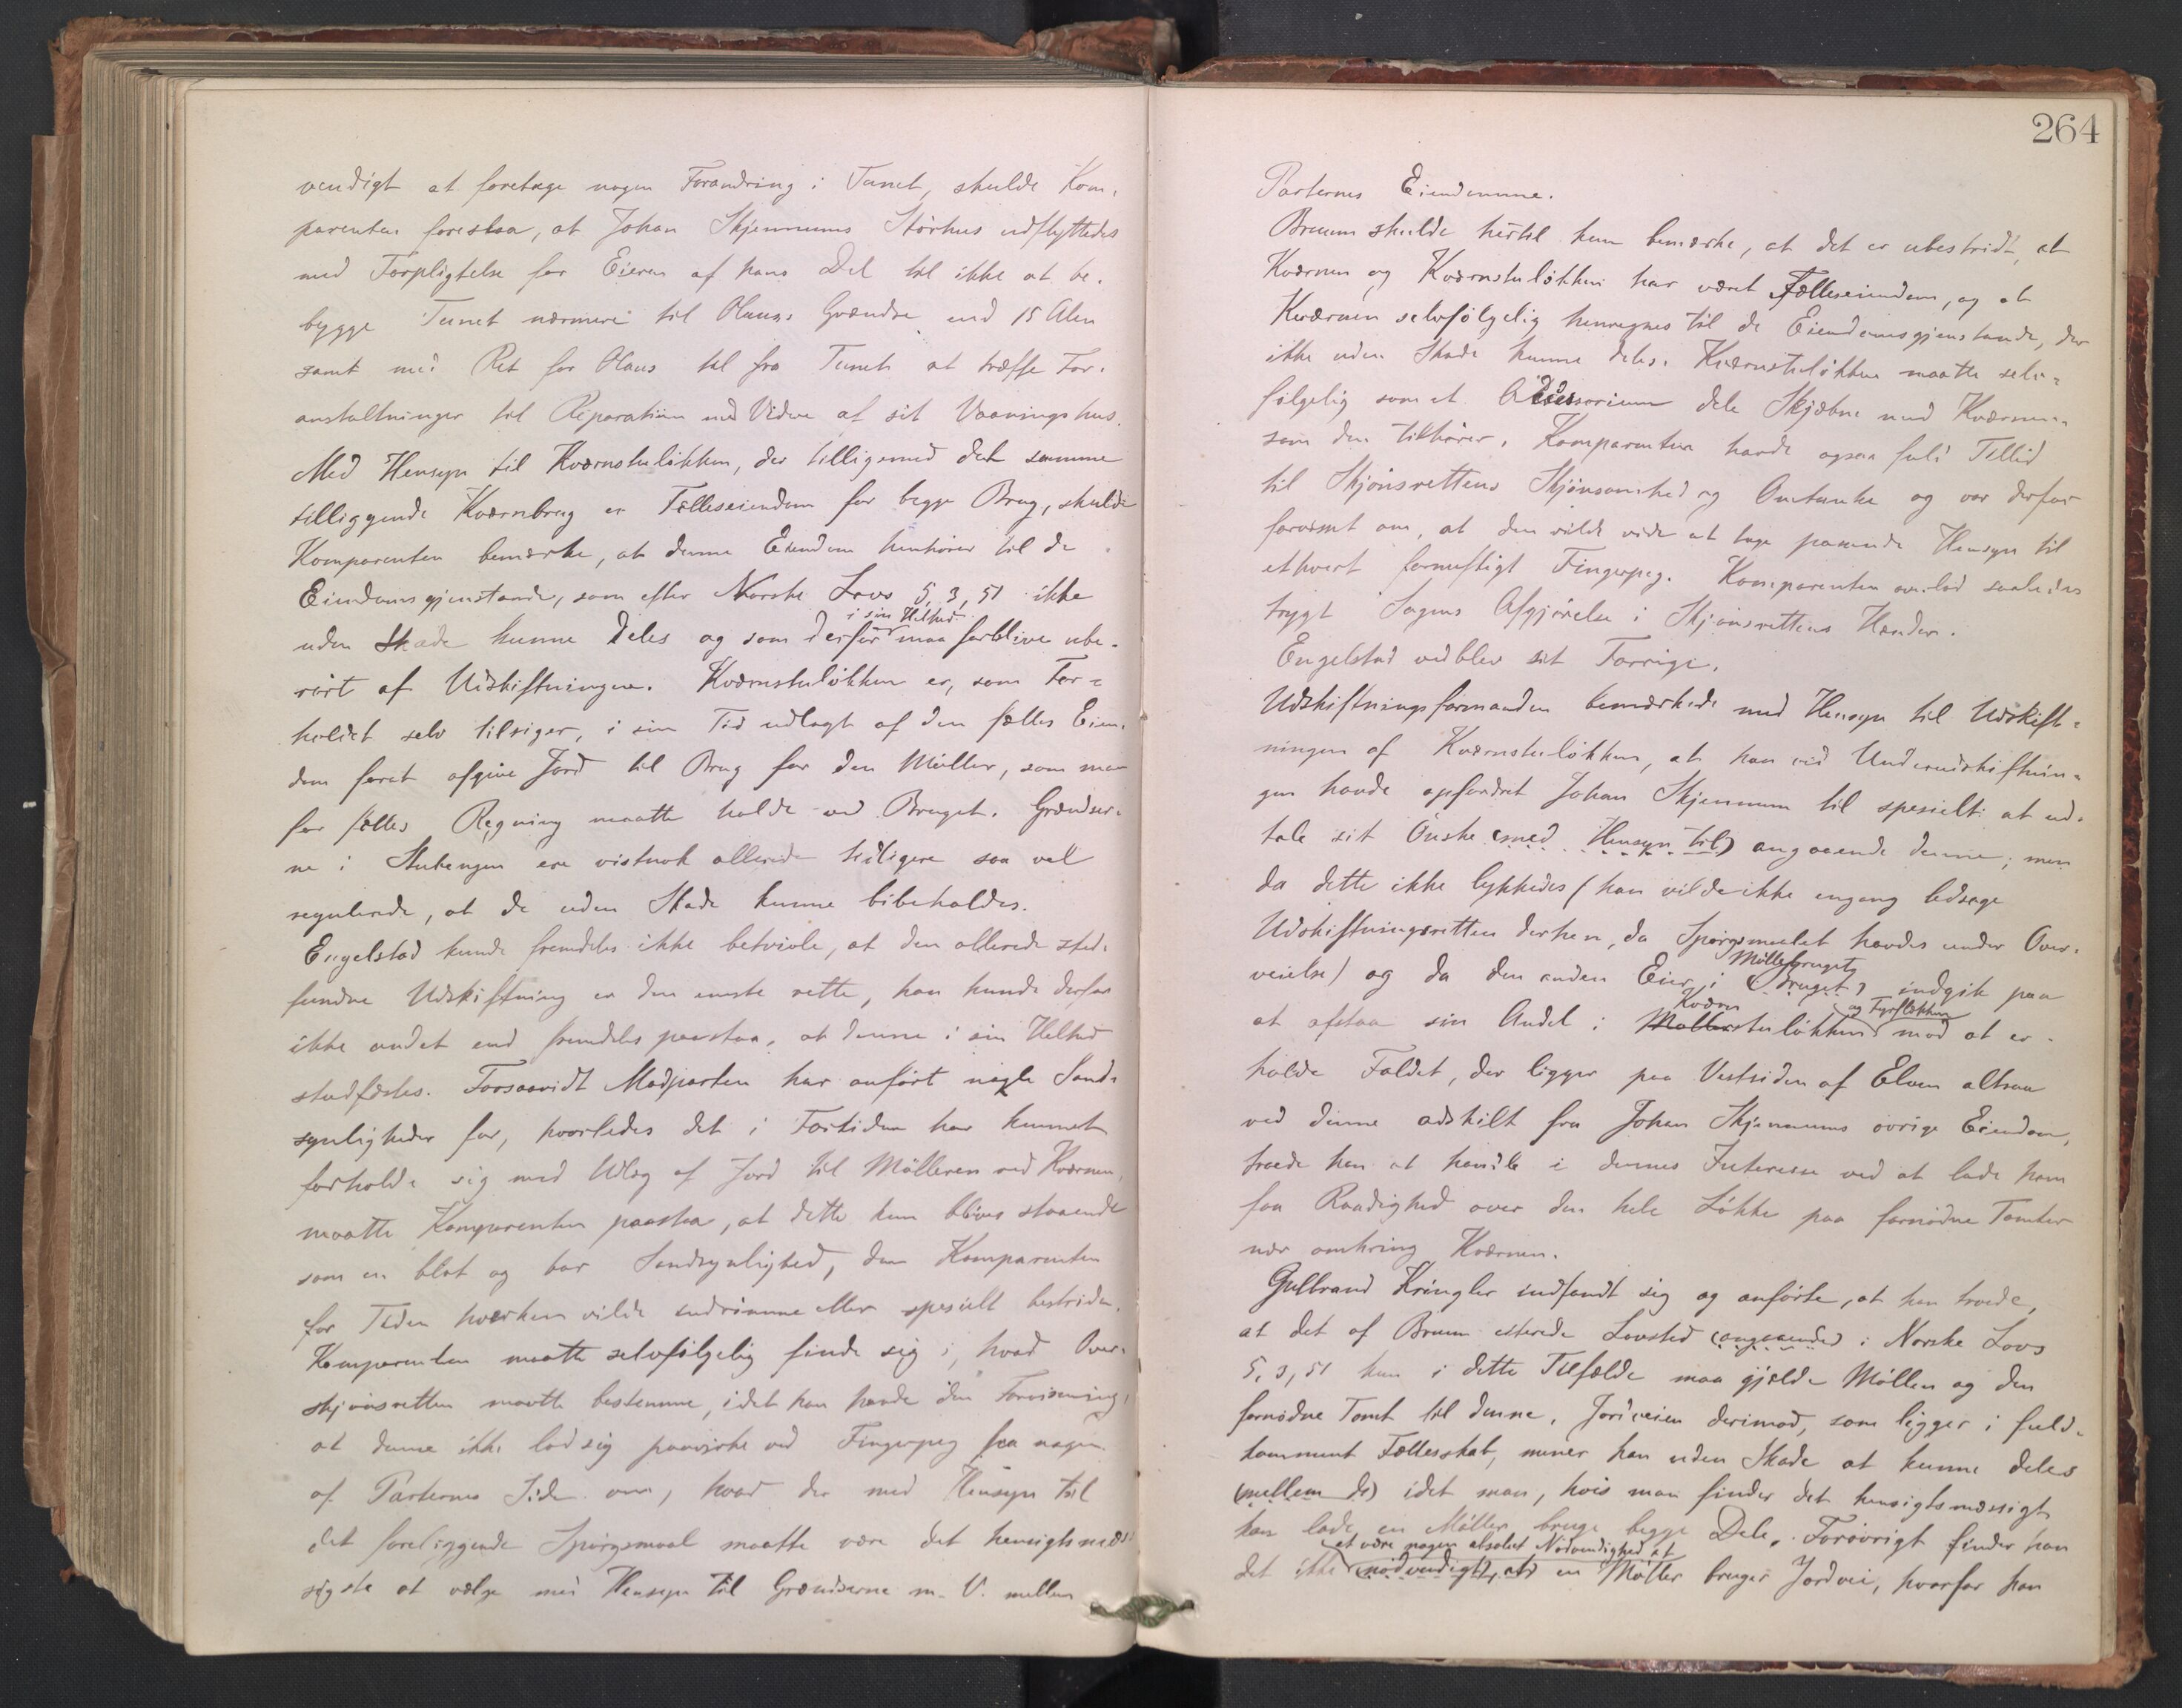 vendigt at foretage nogen Forandring i Tunet, skulde Kom-
parenten foreslaa, at Johan Skjennums Störhus udflyttedes
med Forpligtelse for Eieren af hans Del til ikke at be-
bygge Tunet nærmere til Hans Grændse end 15 Alen
samt med Ret for Hans til fra Tunet at træffe For-
anstaltninger til Reparation med Videre af sit Vaaningshus.
Med Hensyn til Kværnstuløkken, der tilligemed det samme
tilliggende Kværnbrug er Fælleseiendom for begge Brug, skulde
Komparenten bemærke, at denne Eiendom henhører til de
Eiendomsgjenstande, som efter Norske Lovs 5, 3, 51 ikke
uden Skade kunne deles og som derfor i sin Helhed maa forblive ube-
rört af Udskiftningen. Kværnstuløkken er, som For-
holdet selv tilsiger, i sin Tid udlagt af den fælles Eien-
dom forat afgive Jord til Brug for den Møller, som man
for fælles Regning maatte holde ved Bruget. Grændser-
ne i Stuhengen ere vistnok allerede tidligere saa vel
regulerede, at de uden Skade kunne bibeholdes.
Engelstad kunde fremdeles ikke betvivle, at den allerede sted-
fundne Udskiftning er den eneste rette, han kunde derfor
ikke andet end fremdeles paastaa, at denne i sin Helhed
stadfæstes. Forsaavidt Modparten har anført nogle Sand-
synligheder for, hvorledes det i Fortiden har kunnet
forholde sig med Udlæg af Jord til Mølleren ved Kværnen,
maatte Komparenten paastaa, at dette kun bliver staaende
som en blot og bar Sandsynlighed, den Komparenten
for Tiden hverken vilde indrømme eller spesielt bestride.
Komparenten maatte selvfølgelig finde sig i, hvad Over-
skjønsretten maatte bestemme, idet han havde den Forvisning,
at denne ikke lod sig paavirke ved Fingerpeg fra nogen
af Parternes Side om, hvad der med Hensyn til
det foreliggende Spørgsmaal maatte være det hensigtsmæs-
sigste at vælge med Hensyn til Grændserne m. V. mellem
264
Parternes Eiendomme.
Bruun skulde hertil kun bemærke, at det er ubestridt, at
Kværnen og Kværnstuløkken har været Fælleseiendom, og at
Kværnen selvfølgelig henregnes til de Eiendomsgjenstande, der
ikke uden Skade kunne deles. Kværnstuløkken maatte selv-
følgelig som et Accessorium dele Skjæbne med Kværnen
som den tilhører. Komparenten havde ogsaa fuld Tillid
til Skjønsrettens Skjønsomhed og Omtanke og var derfor
forvisset om, at den vilde vide at tage passende Hensyn til
ethvert fornuftigt Fingerpeg. Komparenten overlod saaledes
trygt Sagens Afgjørelse i Skjønsrettens Hænder.
Engelstad vedblev sit Forrige.
Udskiftningsformanden bemærkede med Hensyn til Udskift-
ningen af Kværnstuløkken, at han ved Underudskiftnin-
gen havde opfordret Johan Skjennum til spesielt at ud-
tale sit Ønske (med Hensyn til) angaaende denne; men
da dette ikke lykkedes (han vilde ikke engang ledsage
Udskiftningsretten derhen, da Spørgsmaalet havdes under Over-
veielse) og da den anden Eier i (Bruget) Møllebruget indgik paa
at afstaa sin Andel i Kværnstuløkken og Fyrsløkken mod at er-
holde Faldet, der ligger paa Vestsiden af Elven altsaa
ved denne adskilt fra Johan Skjennums øvrige Eiendom,
troede han at handle i dennes Interesse ved at lade ham
faa Raadighed over den hele Løkke paa fornødne Tomter
nær omkring Kværnen.
Gulbrand Kringler indfandt sig og anførte, at han troede,
at det af Bruun citerede Lovsted (angaaende) i Norske Lovs
5, 3, 51 kun i dette Tilfælde maa gjælde Møllen og den
fornødne Tomt til denne. Jordveien derimod, som ligger i fuld-
komment Fællesskab, mener han uden Skade at kunne deles
(mellem de) idet man, hvis man finder det hensigtsmæssigt
kan lade en Møller bruge begge Dele. Forøvrigt finder han
det ikke (nødvendigt, at) at være nogen absolut Nødvendighed at en Møller bruger Jordvei, hvorfor han